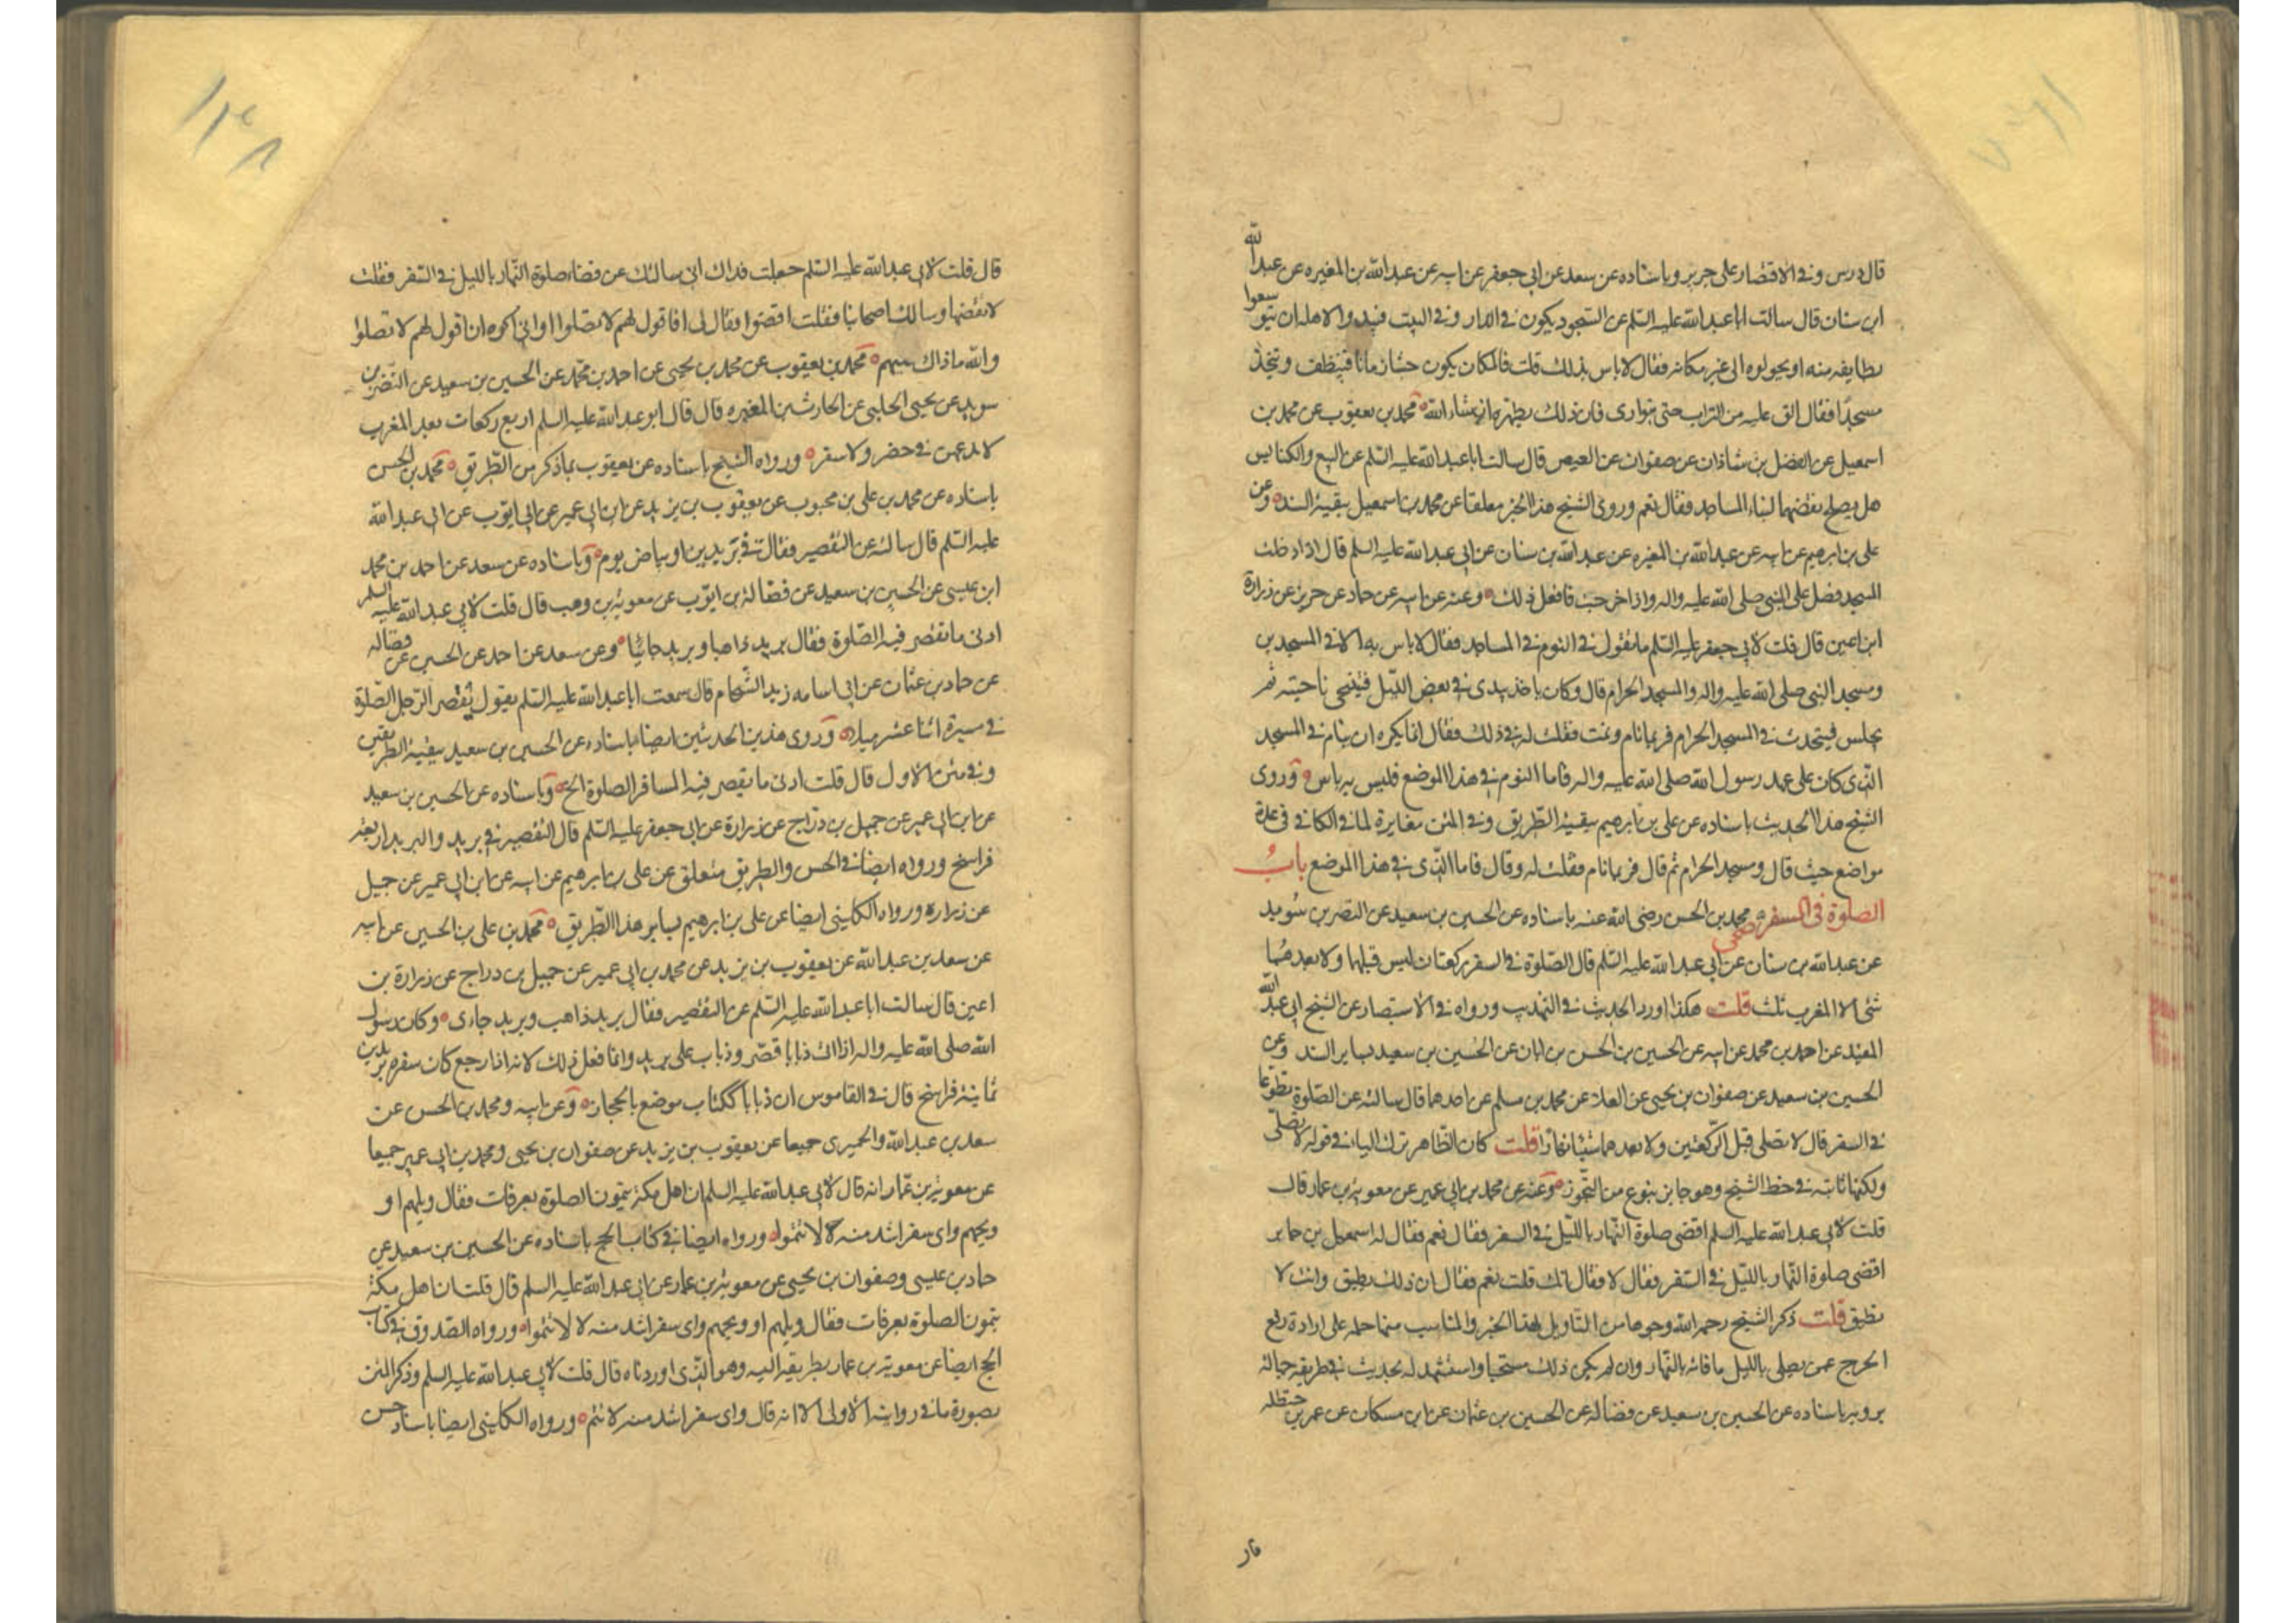 قال درس وفي الاقتصار على جرير وباسناده عن سعد عن ابي جعفر عن ابيه عن عبدالله بن المغيره عن عبدالله
ابن سنان قال سالت اباعبدالله عليه السلم عن المسجد يكون في الدار وفي البيت فيبدوا لاهله ان يتوسعوا
بطايفه منه او يحولوه الى غير مكانه فقال لاباس بذلك قلت فالمكان يكون حشا زمانا فينظف ويتخذ
مسجدا فقال الق عليه من التراب حتى يتوارى فان ذلك يطهره ان شاءالله محمد بن يعقوب عن محمد بن
اسمعيل عن الفضل بن شاذان عن صفوان عن العيص قال سالت اباعبدالله عليه السلم عن البيع والكنايس
هل يصلح نقضها لبناء المساجد فقال نعم وروى الشيخ هذا الخبر معلقا عن محمد بن اسمعيل ببقية السند وعن
على بن ابرهيم عن ابيه عن عبدالله بن المغيره عن عبدالله بن سنان عن ابي عبدالله عليه السلم قال اذا دخلت
المسجد فصل على النبي صلى الله عليه واله واذا خرجت فافعل ذلك وعنه عن ابيه عن حماد عن حريز عن زرارة
ابن اعين قال قلت لابي جعفر عليه السلم ما تقول في النوم في المساجد فقال لاباس به الا في المسجدين
ومسجد النبي صلى الله عليه واله والمسجد الحرام قال وكان ياخذ بيدى في بعض الليل فيتنحى ناحيته ثم
يجلس فيتحدث في المسجد الحرام فربما نام ونمت فقلت له في ذلك فقال انما يكره ان ينام في المسجد
الذى كان على عهد رسول الله صلى الله عليه واله فاما النوم في هذا الموضع فليس به باس وروى
الشيخ هذا الحديث باسناده عن على بن ابرهيم ببقية الطريق وفي المتن مغايرة لما في الكافي في عدة
مواضع حيث قال ومسجد الحرام ثم قال فربما نام فقلت له وقال فاما الذى في هذا الموضع باب
الصلوة في السفر صحى محمد بن الحسن رضى الله عنه باسناده عن الحسين بن سعيد عن النضر بن سويد
عن عبدالله بن سنان عن ابي عبدالله عليه السلم قال الصلوة في السفر ركعتان ليس قبلها ولا بعدهما
شئ الا المغرب ثلث قلت هكذا اورد الحديث في التهذيب ورواه في الاستبصار عن الشيخ ابي عبدالله
المفيد عن احمد بن محمد عن ابيه عن الحسين بن الحسن بن ابان عن الحسين بن سعيد بساير السند وعن
الحسين بن سعيد عن صفوان بن يحيى عن العلاء عن محمد بن مسلم عن احدهما قال سالته عن الصلوة تطوعا
في السفر قال لا تصلى قبل الركعتين ولا بعدهما شيئا نهارا قلت كان الظاهر ترك الياء في قوله لا تصلى
ولكنها ثابته في خط الشيخ وهو جايز بنوع من التجوز وعنه عن محمد بن ابي عمير عن معوية بن عمار قال
قلت لابي عبدالله عليه السلم اقضى صلوة النهار بالليل في السفر فقال نعم فقال له اسمعيل بن جابر
اقضى صلوة النهار بالليل في السفر فقال لا فقال انك قلت نعم فقال ان ذلك يطيق وانت لا
تطيق قلت ذكر الشيخ رحمه الله وجوها من التاويل لهذا الخبر والمناسب منها حمله على ارادة رفع
الحرج عمن يصلى بالليل ما فاته بالنهار وان لم يكن ذلك مستحبا واستشهد له بحديث في طريقه جهالة
يرويه باسناده عن الحسين بن سعيد عن فضالة عن الحسين بن عثمان عن ابن مسكان عن عمر بن حنظله
قال
قال قلت لابي عبدالله عليه السلم جعلت فداك اني سالتك عن قضاء صلوة النهار بالليل في السفر فقلت
لا تقضها وسالك اصحابنا فقلت اقضوا فقال لى افاقول لهم لا تصلوا واني اكره ان اقول لهم لا تصلوا
والله ما ذاك عليهم محمد بن يعقوب عن محمد بن يحيى عن احمد بن محمد عن الحسين بن سعيد عن النضر بن
سويد عن يحيى الحلبي عن الحارث بن المغيره قال قال ابو عبدالله عليه السلم اربع ركعات بعد المغرب
لا تدعهن في حضر ولا سفر ورواه الشيخ باسناده عن يعقوب بما ذكر من الطريق محمد بن الحسن
باسناده عن محمد بن على بن محبوب عن يعقوب بن يزيد عن ابن ابي عمير عن ابي ايوب عن ابي عبدالله
عليه السلم قال سالته عن التقصير فقال في بريدين او بياض يوم وباسناده عن سعد عن احمد بن محمد
ابن عيسى عن الحسين بن سعيد عن فضالة بن ايوب عن معوية بن وهب قال قلت لابي عبدالله عليه السلم
ادنى ما تقصر فيه الصلوة فقال بريد ذاهبا وبريد جائيا وعن سعد عن احمد عن الحسين عن فضاله
عن حماد بن عثمان عن ابي اسامه زيد الشحام قال سمعت اباعبدالله عليه السلم يقول يقصر الرجل الصلوة
في مسيرة اثنا عشر ميلا وروى هذين الحديثين ايضا باسناده عن الحسين بن سعيد ببقية الطريقين
وفي متن الاول قال قلت ادنى ما يقصر فيه المسافر الصلوة الخ وباسناده عن الحسين بن سعيد
عن ابن ابي عمير عن جميل بن دراج عن زرارة عن ابي جعفر عليه السلم قال التقصير في بريد والبريد اربعة
فراسخ ورواه ايضا في الحسن والطريق متعلق عن على بن ابرهيم عن ابيه عن ابن ابي عمير عن جميل
عن زراره ورواه الكليني ايضا عن على بن ابرهيم بساير هذا الطريق محمد بن على بن الحسين عن ابيه
عن سعد بن عبدالله عن يعقوب بن يزيد عن محمد بن ابي عمير عن جميل بن دراج عن زرارة بن
اعين قال سالت اباعبدالله عليه السلم عن التقصير فقال بريد ذاهب وبريد جاءى وكان رسول
الله صلى الله عليه واله اذا اتى ذبابا قصر وذباب على بريد وانما فعل ذلك لانه اذا رجع كان سفره بريدين
ثمانية فراسخ قال في القاموس ان ذبابا ككتاب موضع بالحجاز وعن ابيه ومحمد بن الحسن عن
سعد بن عبدالله والحميرى جميعا عن يعقوب بن يزيد عن صفوان بن يحيى ومحمد بن ابي عمير جميعا
عن معوية بن عمار انه قال لابي عبدالله عليه السلم ان اهل مكة يتمون الصلوة بعرفات فقال ويلهم او
ويحهم واى سفر اشد منه لا لا تتموا ورواه ايضا في كتاب الحج باسناده عن الحسين بن سعيد عن
حماد بن عيسى وصفوان بن يحيى عن معوية بن عمار عن ابي عبدالله عليه السلم قال قلت ان اهل مكة
يتمون الصلوة بعرفات فقال ويلهم او ويحهم واى سفر اشد منه لا لا تتموا ورواه الصدوق في كتاب
الحج ايضا عن معوية بن عمار بطريقه اليه وهو الذى اوردناه قال قلت لابي عبدالله عليه السلم وذكر المتن
بصورة ما في رواية الاولى الا انه قال واى سفر اشد منه لا تتم ورواه الكليني ايضا باسناد حسن